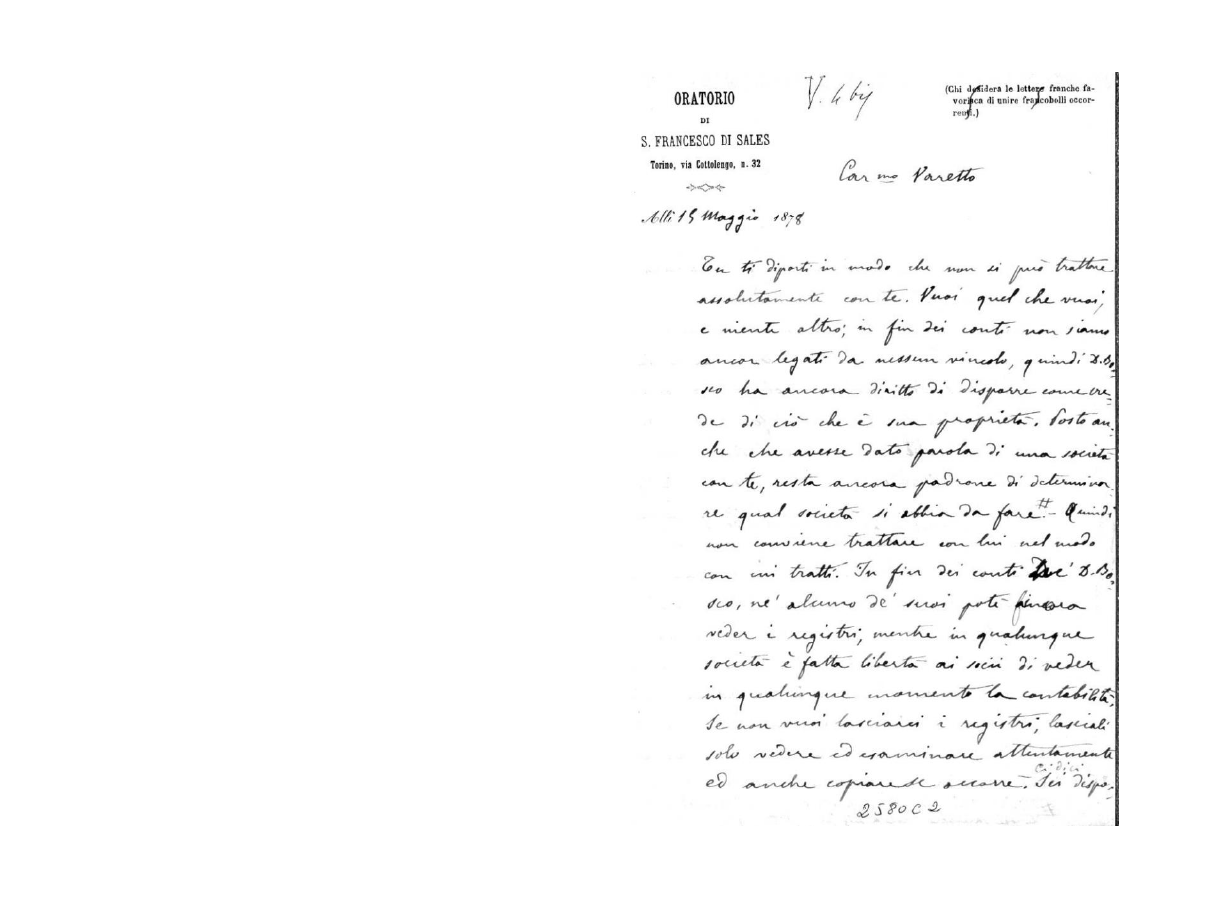 ORATORIO
DI
S. FRANCESCO DI SALES
Torino, via Cottolengo, n. 32
V. 4 bis
(Chi desidera le lettere franche fa-
vorisca di unire francobolli occor-
renti.)
Car mo Varetto
Alli 15 Maggio 1878
Tu ti diporti in modo che non si può trattare
assolutamente con te. Vuoi quel che vuoi,
e niente altro; in fin dei conti non siamo
ancor legati da nessun vincolo, quindi D. Bo-
sco ha ancora diritto di disporre come cre-
de di ciò che è sua proprietà. Posto an-
che che avesse dato parola di una società
con te, resta ancora padrone di determina-
re qual società si abbia da fare # - Quindi
non conviene trattare con lui nel modo
con cui tratti. In fin dei conti né D. Bo-
sco, né alcuno de' suoi poté finora
veder i registri, mentre in qualunque
società è fatta libertà ai socii di veder
in qualunque momento la contabilità.
Se non vuoi lasciarci i registri, lasciali
solo vedere ed esaminare attentamente
ci dici
ed anche copiare se occorre. Sei dispo-
2580 C 2